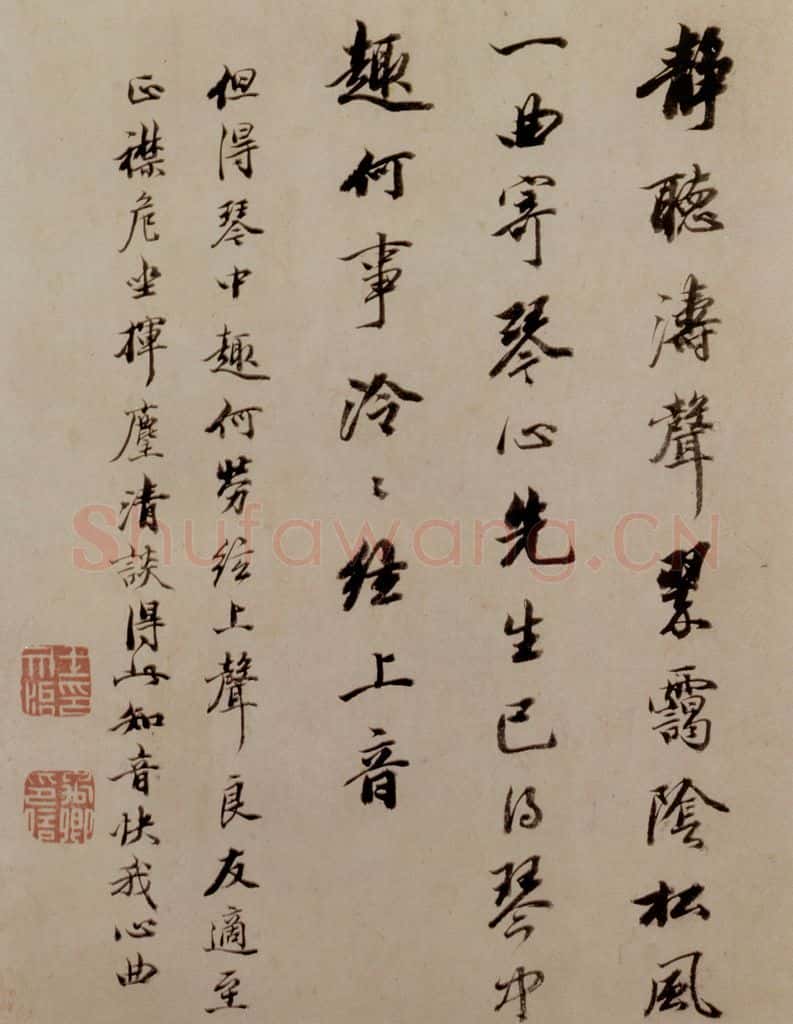 靜聽濤聲翠靄陰松風
一曲寄琴心先生已得琴中
趣何事泠〻絃上音
但得琴中趣何勞絃上聲良友適至
正襟危坐揮麈清談得此知音快我心曲
Shufawang.CN